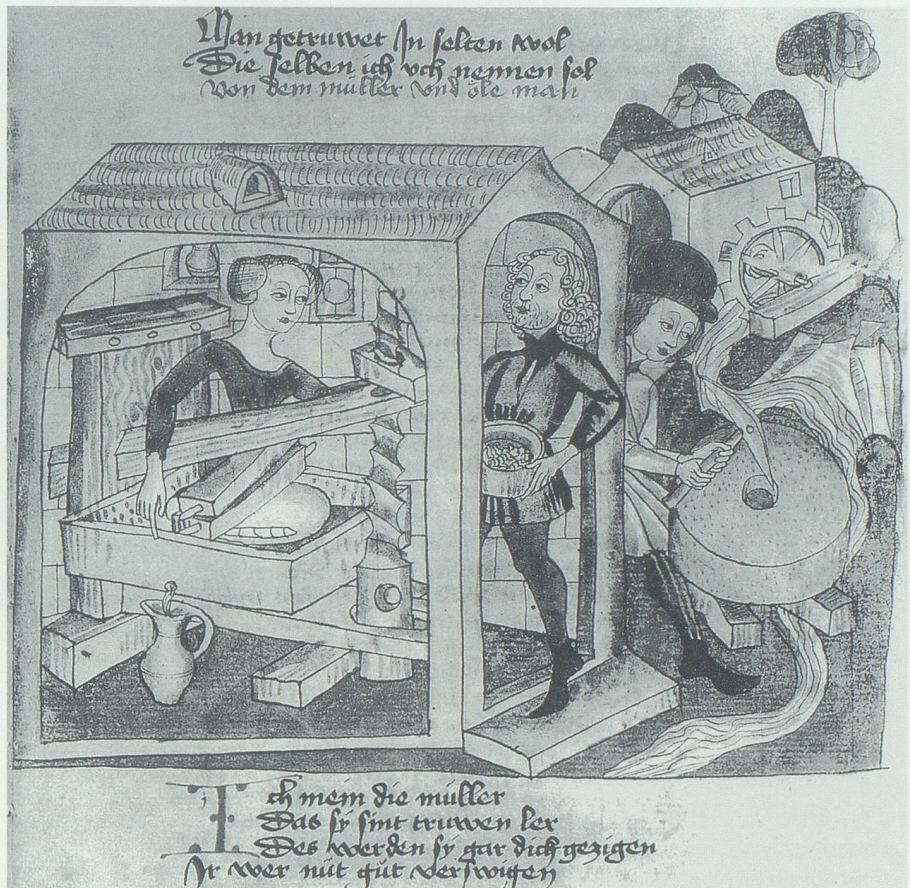 Man getruwet In selten wol
Die selben ich och nennen sol
Von dem müller vnd öle man
Ich mein die müller
Das sÿ sint truwen ler
Des werden sÿ gar dich gezigen
Ir wer nüt güt verswigen